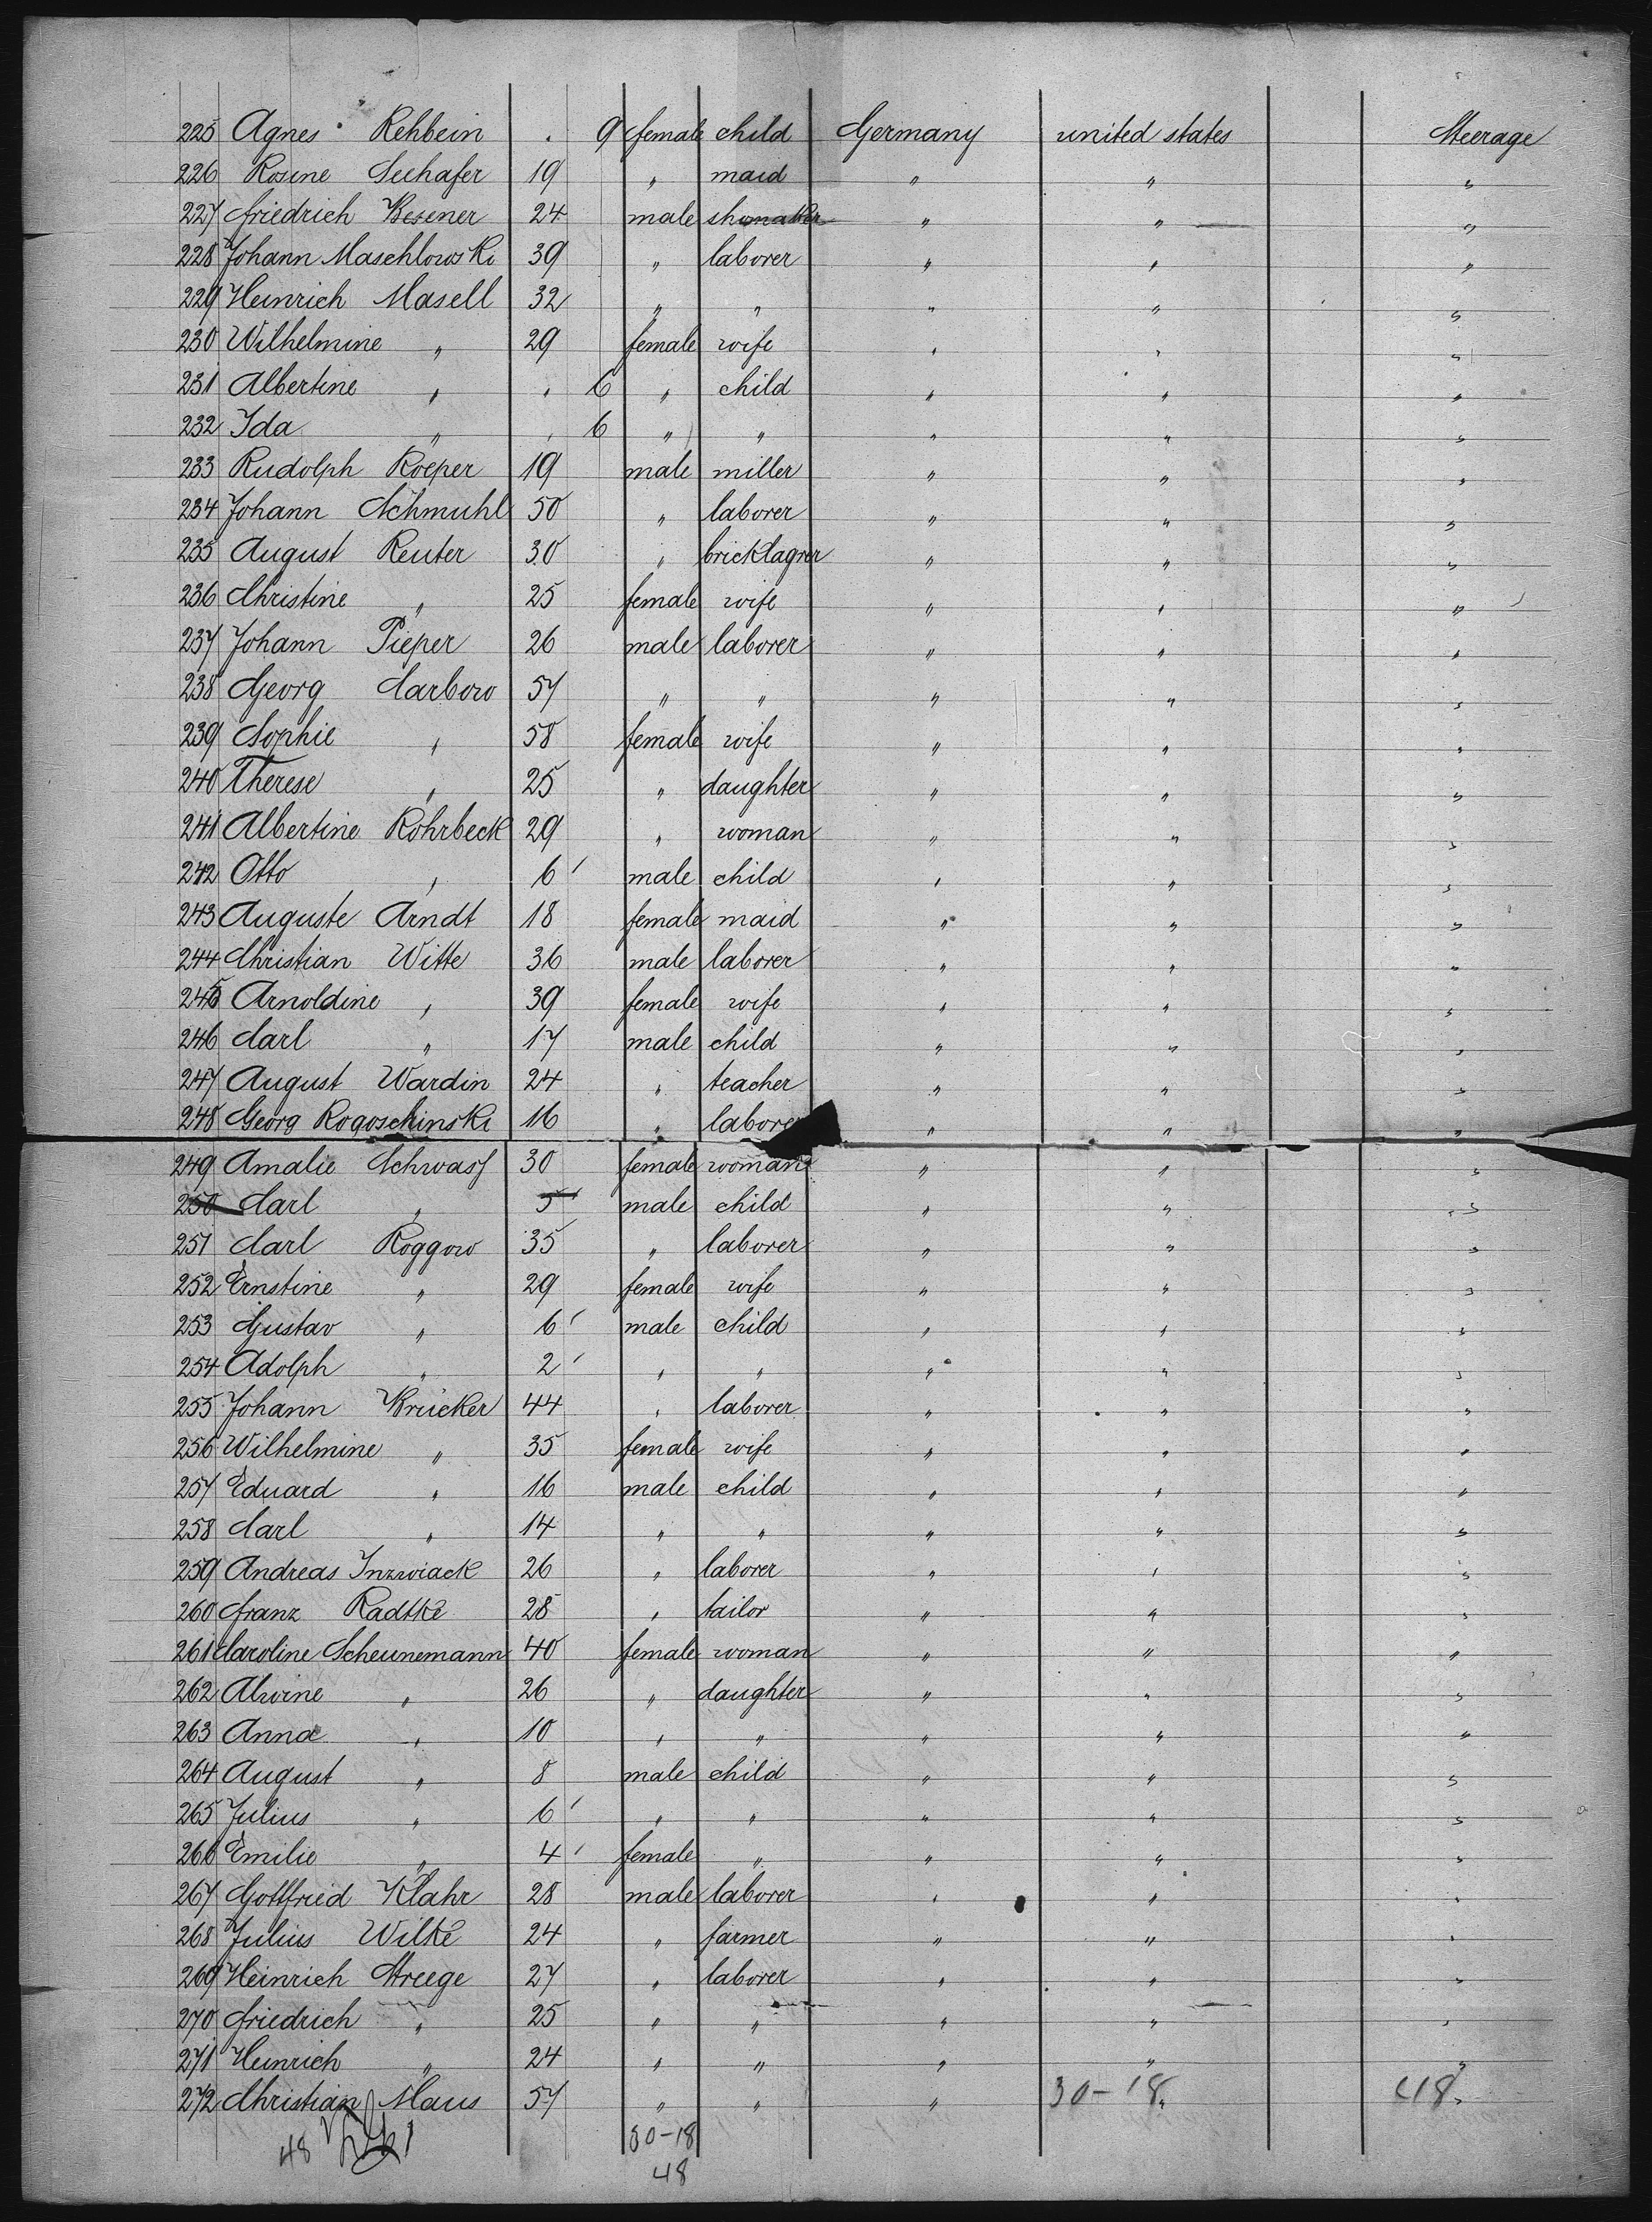 225 Agnes Rehbein . 9 female child Germany united states Steerage
226 Rosine Seehafer 19 " maid " " "
227 Friedrich Besener 24 male shomaker " " "
228 Johann Maschlowski 39 " laborer " " "
229 Heinrich Masell 32 " " " " "
230 Wilhelmine " 29 female wife " " "
231 Albertine " " 6 " child " " "
232 Ida " " 6 " " " " "
233 Rudolph Roeper 19 male miller " " "
234 Johann Schmuhl 50 " laborer " " "
235 August Reuter 30 " bricklagrer " " "
236 Christine " 25 female wife " " "
237 Johann Pieper 26 male laborer " " "
238 Georg Carbow 57 " " " " "
239 Sophie " 58 female wife " " "
240 Therese " 25 " daughter " " "
241 Albertine Rohrbeck 29 " woman " " "
242 Otto " 6 male child " " "
243 Auguste Arndt 18 female maid " " "
244 Christian Witte 36 male laborer " " "
245 Arnoldine " 39 female wife " " "
246 Carl " 17 male child " " "
247 August Wardin 24 " teacher " " "
248 Georg Rogoschinski 16 " laborer " " "
249 Amalie Schwass 30 female woman " " "
250 Carl " 5 male child " " "
251 Carl Roggow 35 " laborer " " "
252 Ernstine " 29 female wife " " "
253 Gustav " 6 male child " " "
254 Adolph " 2 " " " " "
255 Johann Krücker 44 " laborer " " "
256 Wilhelmine " 35 female wife " " "
257 Eduard " 16 male child " " "
258 Carl " 14 " " " " "
259 Andreas Inzwiack 26 " laborer " " "
260 Franz Radtke 28 " tailor " " "
261 Caroline Scheunemann 40 female woman " " "
262 Alwine " 26 " daughter " " "
263 Anna " 10 " " " " "
264 August " 8 male child " " "
265 Julius " 6 " " " " "
266 Emilie " 4 female " " " "
267 Gottfried Klahr 28 male laborer " " "
268 Julius Wilke 24 " farmer " " "
269 Heinrich Streege 27 " laborer " " "
270 Friedrich " 25 " " " " "
271 Heinrich " 24 " " " " "
272 Christian Maus 57 " " " 30-18 " 48 "
48 30-18
48